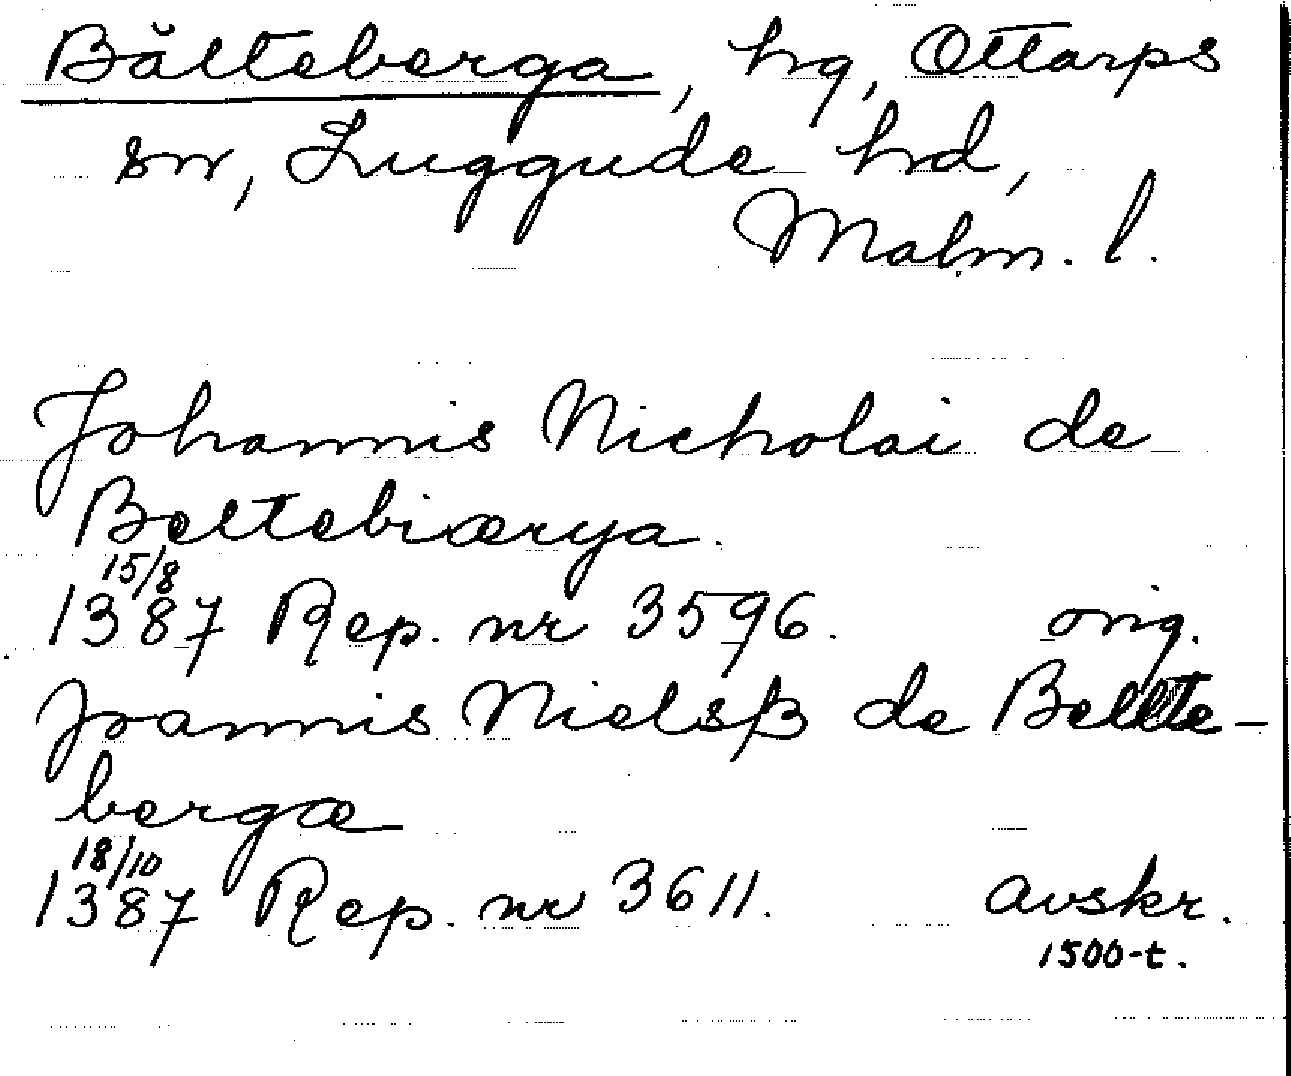 Bälteberga, hg, Ottarps
sn, Luggude hd,
Malm. l.
Johannis Nicholai de
Beltebiærya.
15/8
1387 Rep. nr 3596. orig.
Joannis Nielsß de Bellte-
bergæ
18/10
1387 Rep. nr 3611. avskr.
1500-t.